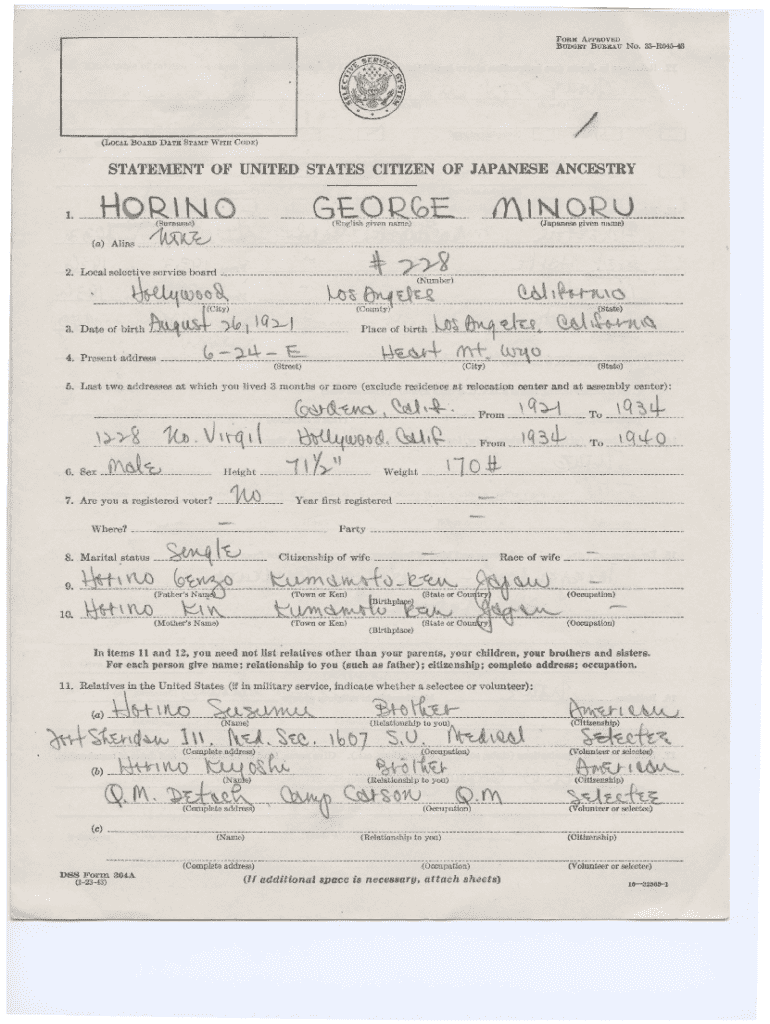 FORM APPROVED
BUDGET BUREAU No. 33-R045-43
SELECTIVE SERVICE SYSTEM
(LOCAL BOARD DATE STAMP WITH CODE)
STATEMENT OF UNITED STATES CITIZEN OF JAPANESE ANCESTRY
1. HORINO GEORGE MINORU
(Surname) (English given name) (Japanese given name)
(a) Alias
2. Local selective service board # 228
(Number)
Hollywood Los Angeles California
(City) (County) (State)
3. Date of birth August 26, 1921 Place of birth Los Angeles, California
4. Present address 6-24-E Heart Mt. Wyo
(Street) (City) (State)
5. Last two addresses at which you lived 3 months or more (exclude residence at relocation center and at assembly center):
Gardena, Calif. From 1921 To 1934
1228 No. Virgil Hollywood, Calif From 1934 To 1940
6. Sex Male Height 71½" Weight 170#
7. Are you a registered voter? No Year first registered —
Where? — Party —
8. Marital status Single Citizenship of wife — Race of wife —
9. Horino Genzo Kumamoto-Ken Japan —
(Father's Name) (Town or Ken) (State or Country) (Occupation)
(Birthplace)
10. Horino Kin Kumamoto Ken Japan —
(Mother's Name) (Town or Ken) (State or Country) (Occupation)
(Birthplace)
In items 11 and 12, you need not list relatives other than your parents, your children, your brothers and sisters.
For each person give name; relationship to you (such as father); citizenship; complete address; occupation.
11. Relatives in the United States (if in military service, indicate whether a selectee or volunteer):
(a) Horino Susumu Brother American
(Name) (Relationship to you) (Citizenship)
Fort Sheridan Ill. Med. Sec. 1607 S.U. Medical Selectee
(Complete address) (Occupation) (Volunteer or selectee)
(b) Horino Kiyoshi Brother American
(Name) (Relationship to you) (Citizenship)
Q.M. Detach, Camp Carson Q.M Selectee
(Complete address) (Occupation) (Volunteer or selectee)
(c)
(Name) (Relationship to you) (Citizenship)
(Complete address) (Occupation) (Volunteer or selectee)
DSS Form 304A
(1-23-43)
(If additional space is necessary, attach sheets)
16—32563-1